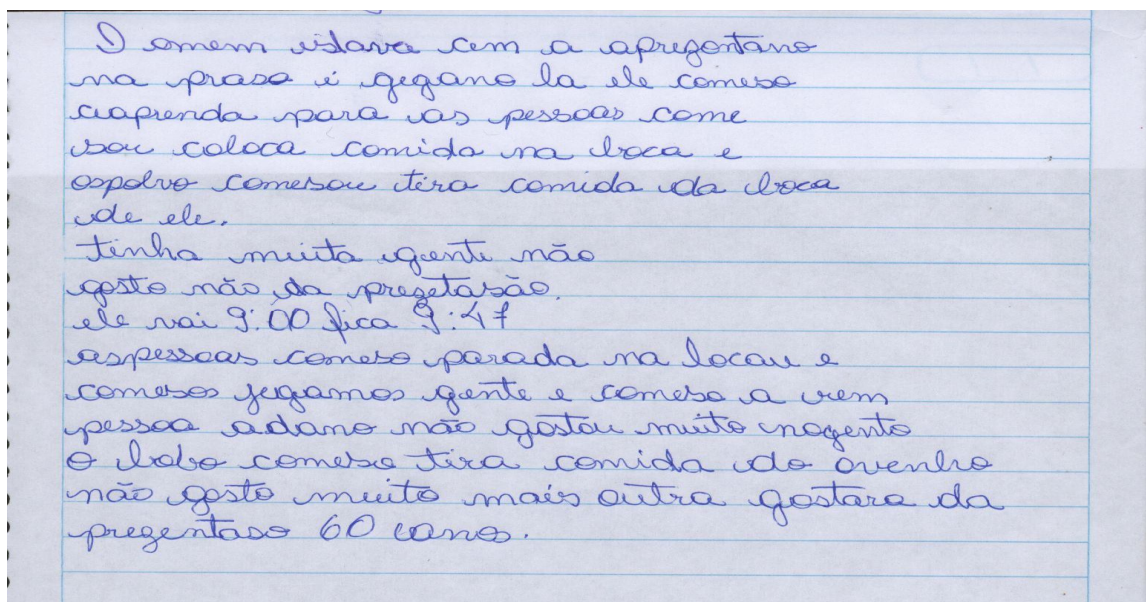 O omem estava cem a aprezentano
na praso i gegano la ele comeso
aaprenda para as pessoas come
sou coloca comida na boca e
ospolvo comesou tira comida da boca
de ele.
tinha muita gente não
gosto não da prezetasão.
ele vai 9:00 fica 9:47
aspessoas comeso parada na locau e
comesos jegamos gente e comeso a vem
pessoa adano não gostou muito nogento
O bobo comeso tira comida do ovenho
não gosto muito mais outra gostara da
prezentaso 60 anos.